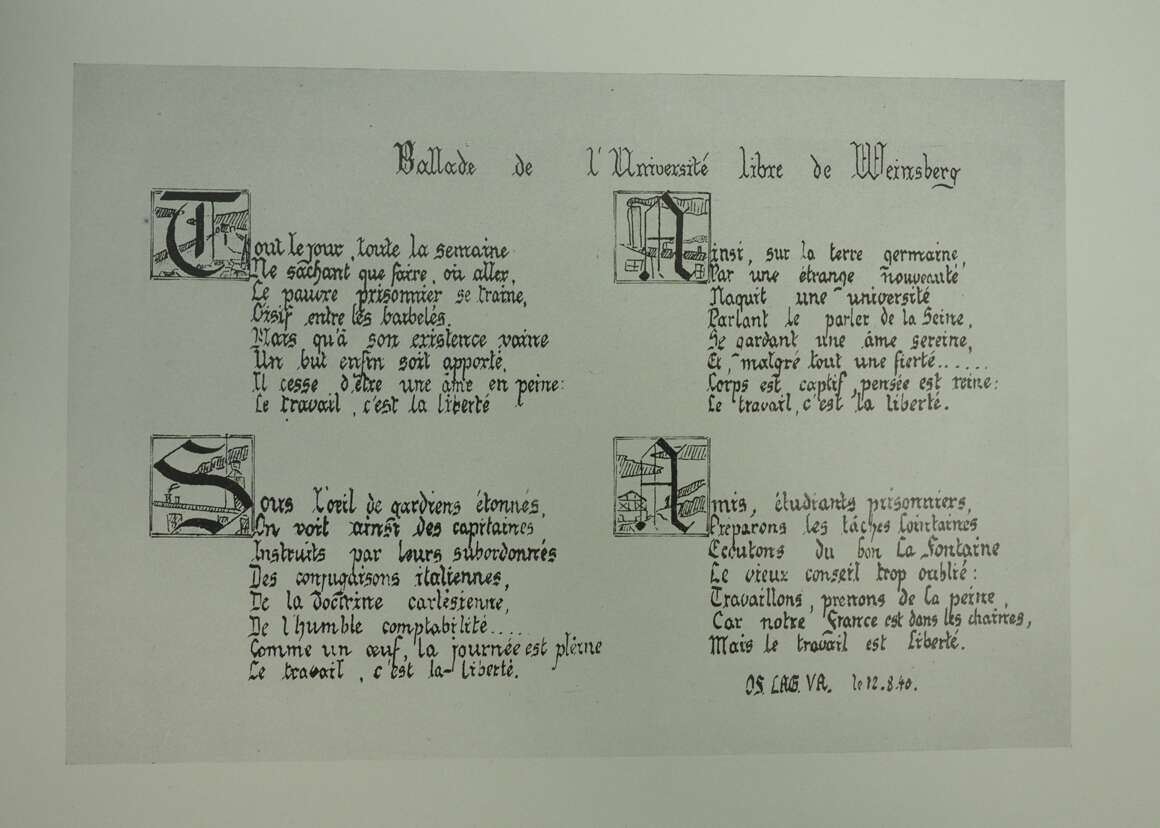 Ballade de l'Université libre de Weinsberg
Tout le jour, toute la semaine
Ne sachant que faire, où aller,
Le pauvre prisonnier se traîne,
Oisif entre les barbelés.
Mais qu'à son existence vaine
Un but enfin soit apporté,
Il cesse d'être une âme en peine:
Le travail, c'est la liberté
Sous l'œil de gardiens étonnés,
On voit ainsi des capitaines
Instruits par leurs subordonnés
Des conjugaisons italiennes,
De la doctrine cartésienne,
De l'humble comptabilité.....
Comme un œuf, la journée est pleine
Le travail, c'est la liberté.
Ainsi, sur la terre germaine,
Par une étrange nouveauté
Naquit une université
Parlant le parler de la Seine,
Se gardant une âme sereine,
Et, malgré tout une fierté......
Corps est captif, pensée est reine:
Le travail, c'est la liberté.
Amis, étudiants prisonniers,
Préparons les tâches lointaines
Ecoutons du bon La Fontaine
Le vieux conseil trop oublié:
Travaillons, prenons de la peine,
Car notre France est dans les chaînes,
Mais le travail est liberté.
OS. LAG. VA. le 12.8.40.